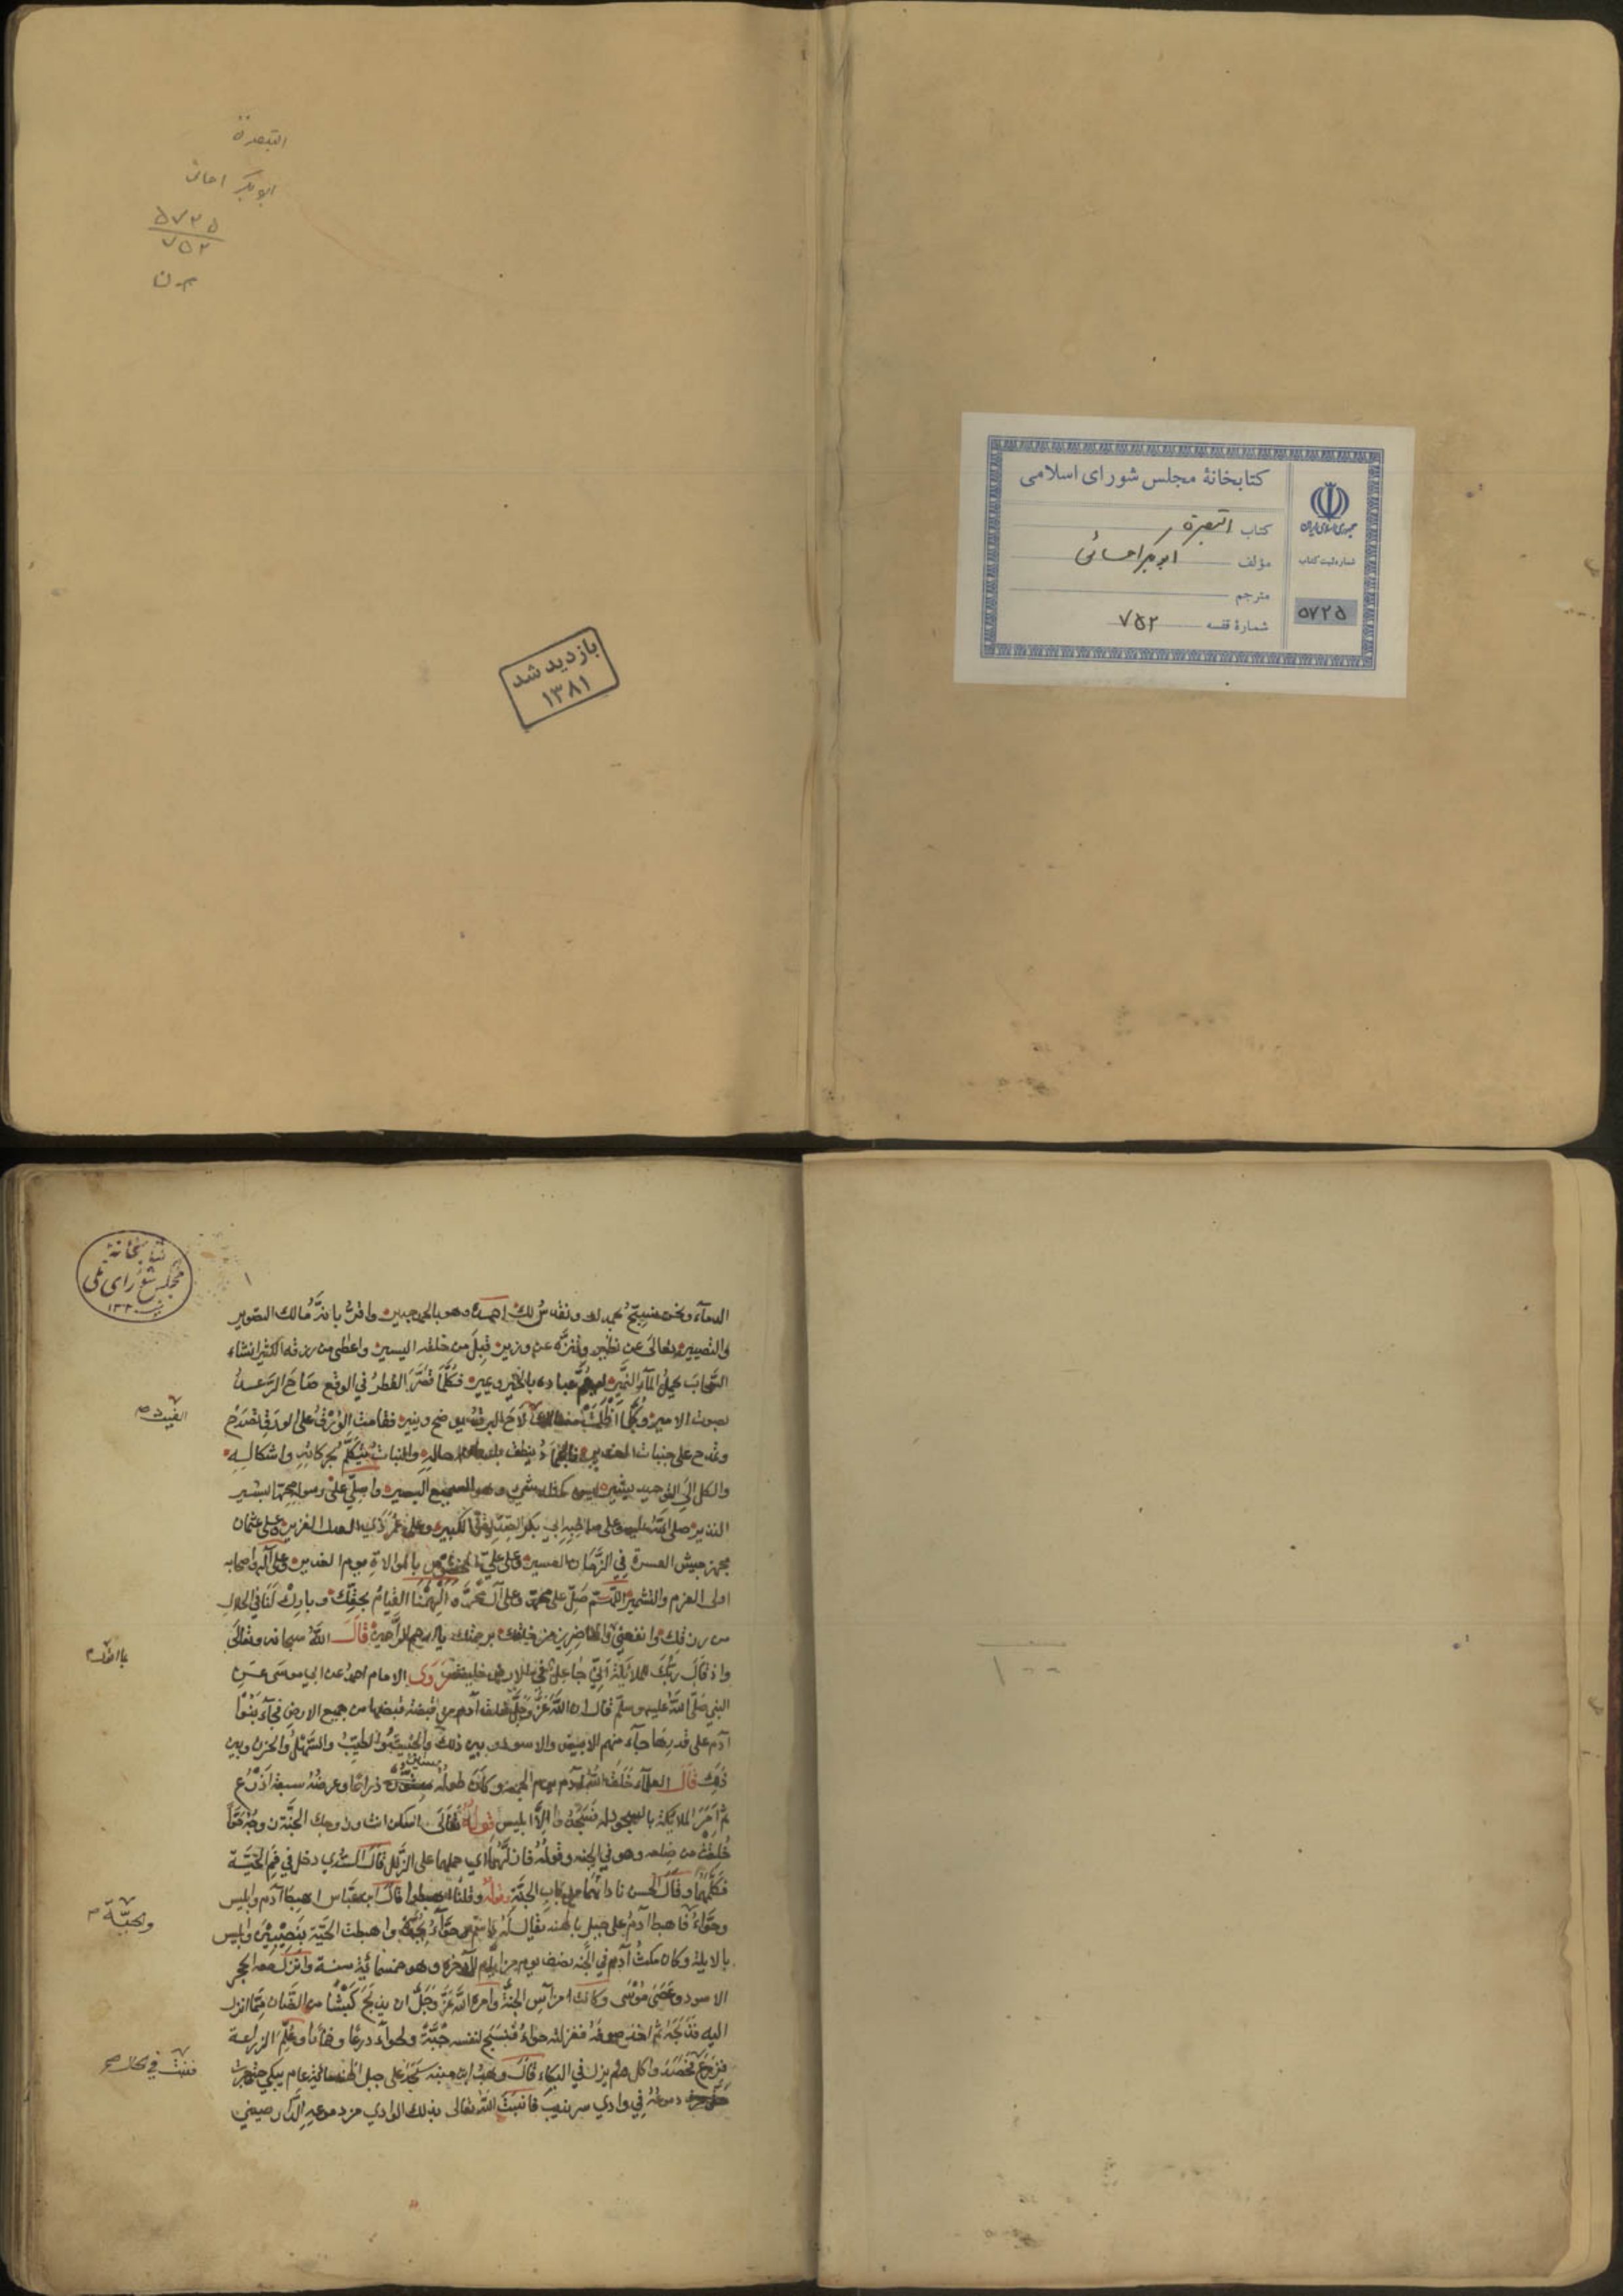 التبصرة
ابوبکر احسائی
۵۷۲۵
۷۵۲
کتابخانهٔ مجلس شورای اسلامی
جمهوری اسلامی ایران
کتاب التبصرة
مؤلف ابوبکر احسائی
شماره ثبت کتاب
مترجم
۵۷۲۵
شمارهٔ قفسه ۷۵۲
بازدید شد
۱۳۸۱
کتابخانهٔ
مجلس شورای ملی
۱
الدمآء ونحن نسبّح بحمدك ونقدّس لك احمده وهو بالحمد جدير واقرّ بانّه مالك التصوير
والتصيير تعالى عن نظير وتنزّه عن وزير قبل من خلقه اليسير واعطى من رزقه الكثير انشاء
السّحاب يحمل المآء النّمير ليعمّ عباده بالخير ويمير فكلّما قصّر القطر في الوقع صاح الرّعد
بصوت الامير وكلّما اظلمت لاح البرق يوضح وينير فقامت الورق على الورق تصدح
الغيث صح
وتمدح على جنبات الغدير فالجماد ينطق بلسان حاله والنبات يتكلّم بحركاته واشكاله
والكل الى التوحيد يشير ليس كمثله شيء وهو السميع البصير واصلّي على رسوله محمّد البشير
النذير صلى الله عليه وعلى صاحبه ابي بكر الصّدّيق الكبير وعلى عمر ذي العدل الغزير وعلى عثمان
مجهز جيش العسرة في الزّمان العسير وعلى عليّ المخصوص بالموالاة يوم الغدير وعلى آله واصحابه
اولى العزم والتشمير اللّهمّ صلّ على محمّد وعلى آل محمّد والهمنا القيام بحقّك وبارك لنا في الحلال
من رزقك وانفعني والحاضرين من خلقك برحمتك يا ارحم الرّاحمين قال الله سبحانه وتعالى
واذ قال ربّك للملائكة انّي جاعل في الارض خليفة روى الامام احمد عن ابي موسى عن
النبي صلى الله عليه وسلّم قال ان الله عزّ وجلّ خلق آدم من قبضة قبضها من جميع الارض فجآء بنوا
آدم على قدرها جآء منهم الابيض والاسود وبين ذلك والخبيث والطيّب والسّهل والحزن وبين
ذلك قال العلمآء خلق الله آدم يوم الجمعة وكان طوله ستّون ذراعًا وعرضه سبعة اذرع
ستين
ثم امر الملائكة بالسجود له فسجدوا الّا ابليس قوله تعالى اسكن انت وزوجك الجنّة وزوجه حوّا
خلقت من ضلعه وهو في الجنه وقوله فازلّهما اي حملهما على الزّلل قال السّدي دخل في فم الحيّة
فكلّمهما وقال الحسن ناداهما من باب الجنّة وقوله وقلنا اهبطوا قال ابن عبّاس اهبط آدم وابليس
وحوّاء فاهبط آدم على جبل بالهند يقال له واسم حوّآء بجدّة واهبطت الحيّة بنصيبين وابليس
والحيّة صح
بالابلة وكان مكث آدم في الجنّة نصف يوم من ايّام الآخرة وهو خمسمائة سنة وانزل معه الحجر
الاسود وعصى موسى وكانت من آس الجنّة وامره الله عزّ وجلّ ان يذبح كبشًا من الضّان ممّا انزل
اليه فذبحه ثم اخذ صوفه فغزلته حوّاء فنسج لنفسه جبّة ولحوآء درعًا وخمارًا وعلّم الزراعة
فزرع فحصد واكل ولم يزل في البكاء قال وهب ابن منبه سجد على جبل الهند مائة عام يبكي حتى جرت
دموعه في وادي سرنديب فانبت الله تعالى بذلك الوادي من دموعه الدّارصيني